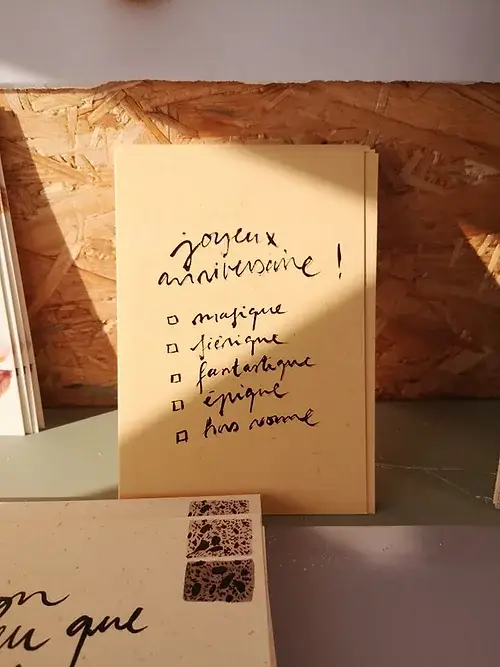 joyeux
anniversaire !
□ magique
□ féérique
□ fantastique
□ épique
□ hors norme
que